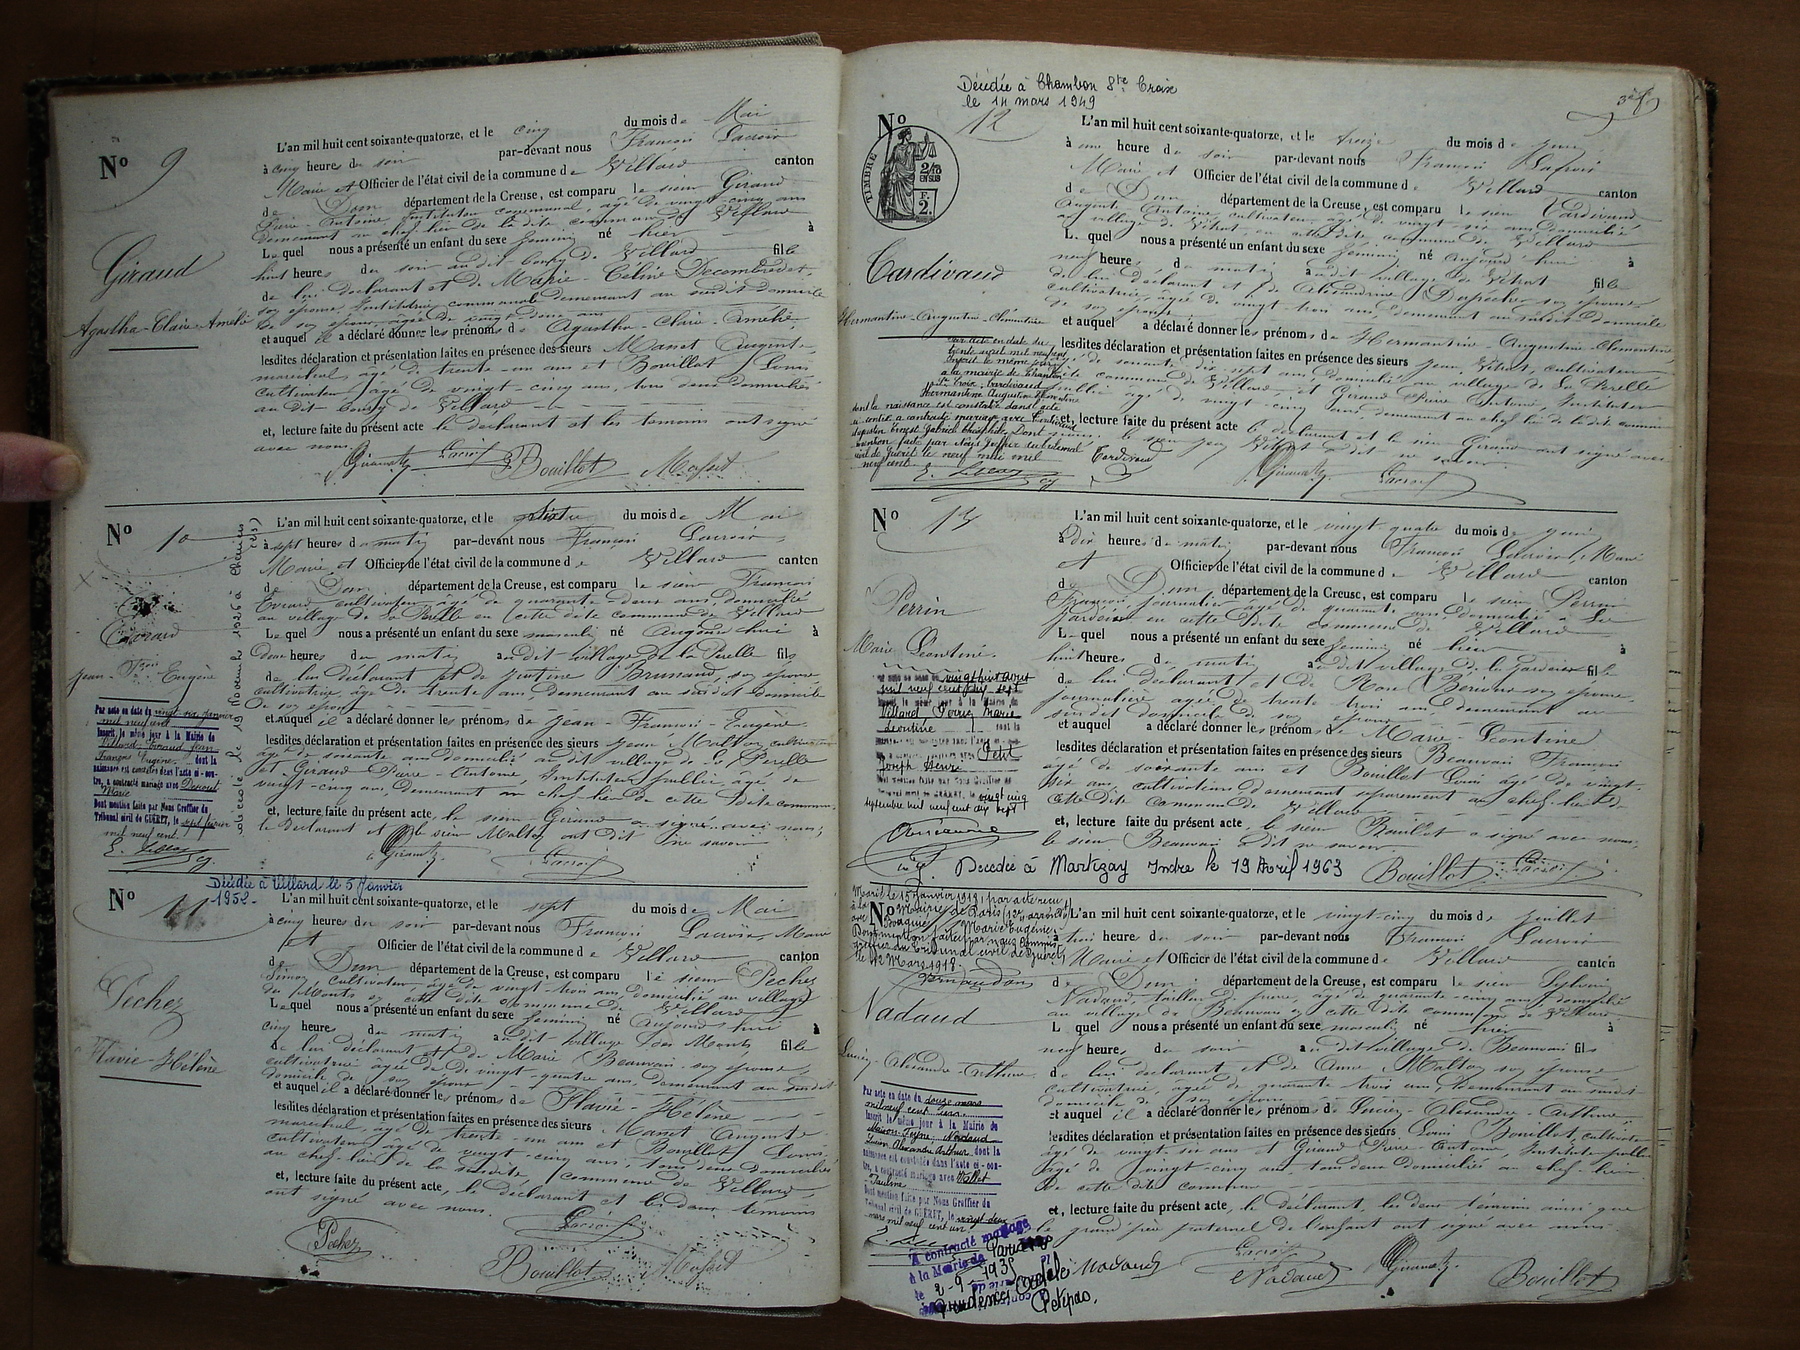 Nº 9
Giraud
Agastha-Claire-Amélie
L'an mil huit cent soixante-quatorze, et le cinq du mois de Mai
à cinq heures du soir par-devant nous François Lacroix
Maire et Officier de l'état civil de la commune de Villard canton
de Dun département de la Creuse, est comparu le sieur Giraud
Pierre-Antoine Instituteur communal, âgé de vingt-cinq ans
demeurant au chef-lieu de la dite commune de Villard
Lequel nous a présenté un enfant du sexe féminin né hier à
huit heures du soir au dit bourg de Villard fille
de lui déclarant et de Marie-Céline Decombredet,
son épouse, Institutrice communale demeurant au susdit domicile
de son époux, âgée de vingt-deux ans
et auquel il a déclaré donner les prénoms de Agastha-Claire-Amélie,
lesdites déclaration et présentation faites en présence des sieurs Masset Auguste
maréchal, âgé de trente-un ans et Bouillot Louis
cultivateur, âgé de vingt-cinq ans, tous deux domiciliés
au dit bourg de Villard
et, lecture faite du présent acte le déclarant et les témoins ont signé
avec nous.
Giraud Lacroix Bouillot Masset
Nº 10
Evrard
Jean-Fçois Eugène
Par acte en date du vingt six janvier
mil neuf cent
Inscrit, le même jour à la Mairie de
Villard Evrard Jean
François Eugène dont la
naissance est constatée dans l'acte ci-con-
tre, a contracté mariage avec
Marie
Dont mention faite par Nous Greffier du
Tribunal civil de GUÉRET, le sept février
mil neuf cent.
décédé le 19 Novembre 1926 à Chéniers
L'an mil huit cent soixante-quatorze, et le sixte du mois de Mai
à sept heures du matin par-devant nous François Lacroix,
Maire et Officier de l'état civil de la commune de Villard canton
de Dun département de la Creuse, est comparu le sieur François
Evrard cultivateur âgé de quarante-deux ans, domicilié
au village de la Perelle en cette dite commune de Villard
Lequel nous a présenté un enfant du sexe masculin né aujourd'hui à
deux heures du matin au dit village de la Perelle fils
de lui déclarant et de Justine Brunaud, son épouse,
cultivatrice, âgée de trente ans demeurant au susdit domicile
de son époux
et auquel il a déclaré donner les prénoms de Jean-François-Eugène
lesdites déclaration et présentation faites en présence des sieurs Jean Malton cultivateur
âgé de soixante ans domicilié au dit village de la Perelle
et Giraud Pierre-Antoine Instituteur public âgé de
vingt-cinq ans, demeurant au chef-lieu de cette dite commune
et, lecture faite du présent acte, le sieur Giraud a signé avec nous;
le déclarant et le sieur Malton ont dit ne savoir
Giraud Lacroix
Nº 11
Décédée à Villard le 5 Janvier
1952.
Pechez
Flavie-Hélène
L'an mil huit cent soixante-quatorze, et le sept du mois de Mai
à cinq heures du soir par-devant nous François Lacroix, Maire
et Officier de l'état civil de la commune de Villard canton
de Dun département de la Creuse, est comparu le sieur Pechez
cultivateur, âgé de vingt-trois ans, domicilié au village
des Monts en cette dite commune de Villard
Lequel nous a présenté un enfant du sexe féminin né aujourd'hui à
cinq heures du matin au dit village des Monts fille
de lui déclarant et de Marie Beauvais son épouse,
cultivatrice âgée de vingt-quatre ans, demeurant au susdit
domicile de son époux
et auquel il a déclaré donner les prénoms de Flavie-Hélène
lesdites déclaration et présentation faites en présence des sieurs Masset Auguste
maréchal, âgé de trente-un ans et Bouillot Louis
cultivateur, âgé de vingt-cinq ans, tous deux domiciliés
au chef-lieu de la susdite commune de Villard
et, lecture faite du présent acte, le déclarant et les deux témoins
ont signé avec nous.
Pechez Lacroix
Bouillot Masset
Décédée à Chambon Ste Croix
le 14 mars 1949
Nº 12
TIMBRE
2/10 EN SUS
F. 2.
Tardivaud
Hermantine-Augustine-Clémentine
par acte en date du
trente avril mil neuf cent
inscrit le même jour
à la mairie de Chambon
Ste Croix Tardivaud
Hermantine Augustine Clémentine
dont la naissance est constatée dans l'acte
ci-contre a contracté mariage avec
Ernest
mention faite par Nous Greffier du tribunal
civil de Guéret le neuf mai mil
neuf cent.
L'an mil huit cent soixante-quatorze, et le treize du mois de juin
à une heure du soir par-devant nous François Lacroix
Maire et Officier de l'état civil de la commune de Villard canton
de Dun département de la Creuse, est comparu le sieur Tardivaud
Auguste Antoine, cultivateur, âgé de vingt-six ans domicilié
au village de Vétrat, en cette dite commune de Villard
Lequel nous a présenté un enfant du sexe féminin né aujourd'hui à
neuf heures du matin au dit village de Vétrat fille
de lui déclarant et de Alexandrine Dupéchez son épouse
cultivatrice, âgée de vingt trois ans, demeurant au susdit domicile
de son époux
et auquel a déclaré donner les prénoms de Hermantine-Augustine-Clémentine
lesdites déclaration et présentation faites en présence des sieurs Jean Vétrat, cultivateur
âgé de soixante dix sept ans, domicilié au village de La Perelle
dite commune de Villard, et Giraud Pierre Antoine, Instituteur
public âgé de vingt-cinq ans demeurant au chef lieu de la dite commune
et, lecture faite du présent acte le déclarant et le sieur Giraud ont signé avec
nous. le sieur Jean Vétrat a dit ne savoir.
Tardivaud Giraud Lacroix
Nº 13
Perrin
Marie Léontine.
vingt huit avril
mil neuf cent dix sept
Villard Perrin Marie
Léontine
Petit
Joseph Henri
vingt cinq
septembre mil neuf cent dix sept
L'an mil huit cent soixante-quatorze, et le vingt-quatre du mois de juin
à dix heures du matin par-devant nous François Lacroix, Maire
et Officier de l'état civil de la commune de Villard canton
de Dun département de la Creuse, est comparu le sieur Perrin
François, journalier âgé de quarante ans, domicilié à La
Jardeix en cette dite commune de Villard
Lequel nous a présenté un enfant du sexe féminin né hier à
huit heures du matin au dit village de la Jardeix fille
de lui déclarant et de Rose son épouse,
journalière, âgée de trente trois ans demeurant au
susdit domicile de son époux
et auquel a déclaré donner les prénoms de Marie-Léontine
lesdites déclaration et présentation faites en présence des sieurs Beauvais François
âgé de soixante ans et Bouillot Louis âgé de vingt-
six ans, cultivateurs demeurant séparément au chef-lieu de
cette dite commune de Villard
et, lecture faite du présent acte, le sieur Bouillot a signé avec nous;
le sieur Beauvais a dit ne savoir
Décédée à Martizay Indre le 19 Avril 1963
Bouillot Lacroix
Nº
Marié le 15 Janvier 1919, par acte reçu
à la Mairie de Paris
avec Marie Eugénie.
Dont mention faite par nous Commis
greffier du tribunal civil de Guéret,
le 12 Mars 1919.
Nadaud
Lucien-Alexandre-Arthur
Par acte en date du douze mars
mil neuf cent un
Inscrit le même jour à la Mairie de
Maison-Feyne, Nadaud
Lucien Alexandre Arthur dont la
naissance est constatée dans l'acte ci-con-
tre, a contracté mariage avec Mallet
Pauline
Dont mention faite par Nous Greffier du
Tribunal civil de GUÉRET, le vingt deux
mars mil neuf cent un
A contracté mariage
à la Mairie de Paris
le 2-9-1935
Prudence
Petipas.
L'an mil huit cent soixante-quatorze, et le vingt-cinq du mois de juillet
à trois heures du soir par-devant nous François Lacroix
Maire et Officier de l'état civil de la commune de Villard canton
de Dun département de la Creuse, est comparu le sieur Sylvain
Nadaud, tailleur de pierre, âgé de quarante-cinq ans, domicilié
au village de Beauvais en cette dite commune de Villard
Lequel nous a présenté un enfant du sexe masculin né hier à
neuf heures du soir au dit village de Beauvais fils
de lui déclarant et de Anne Malton son épouse
cultivatrice, âgée de quarante trois ans, demeurant au susdit
domicile de son époux
et auquel il a déclaré donner les prénoms de Lucien-Alexandre-Arthur
lesdites déclaration et présentation faites en présence des sieurs Louis Bouillot, cultivateur
âgé de vingt-six ans et Giraud Pierre Antoine, Instituteur public
âgé de vingt-cinq ans tous deux domiciliés au chef-lieu
de cette dite commune
et, lecture faite du présent acte, le déclarant, les deux témoins ainsi que
le grand père paternel de l'enfant ont signé avec nous
Nadaud Lacroix Nadaud Giraud Bouillot